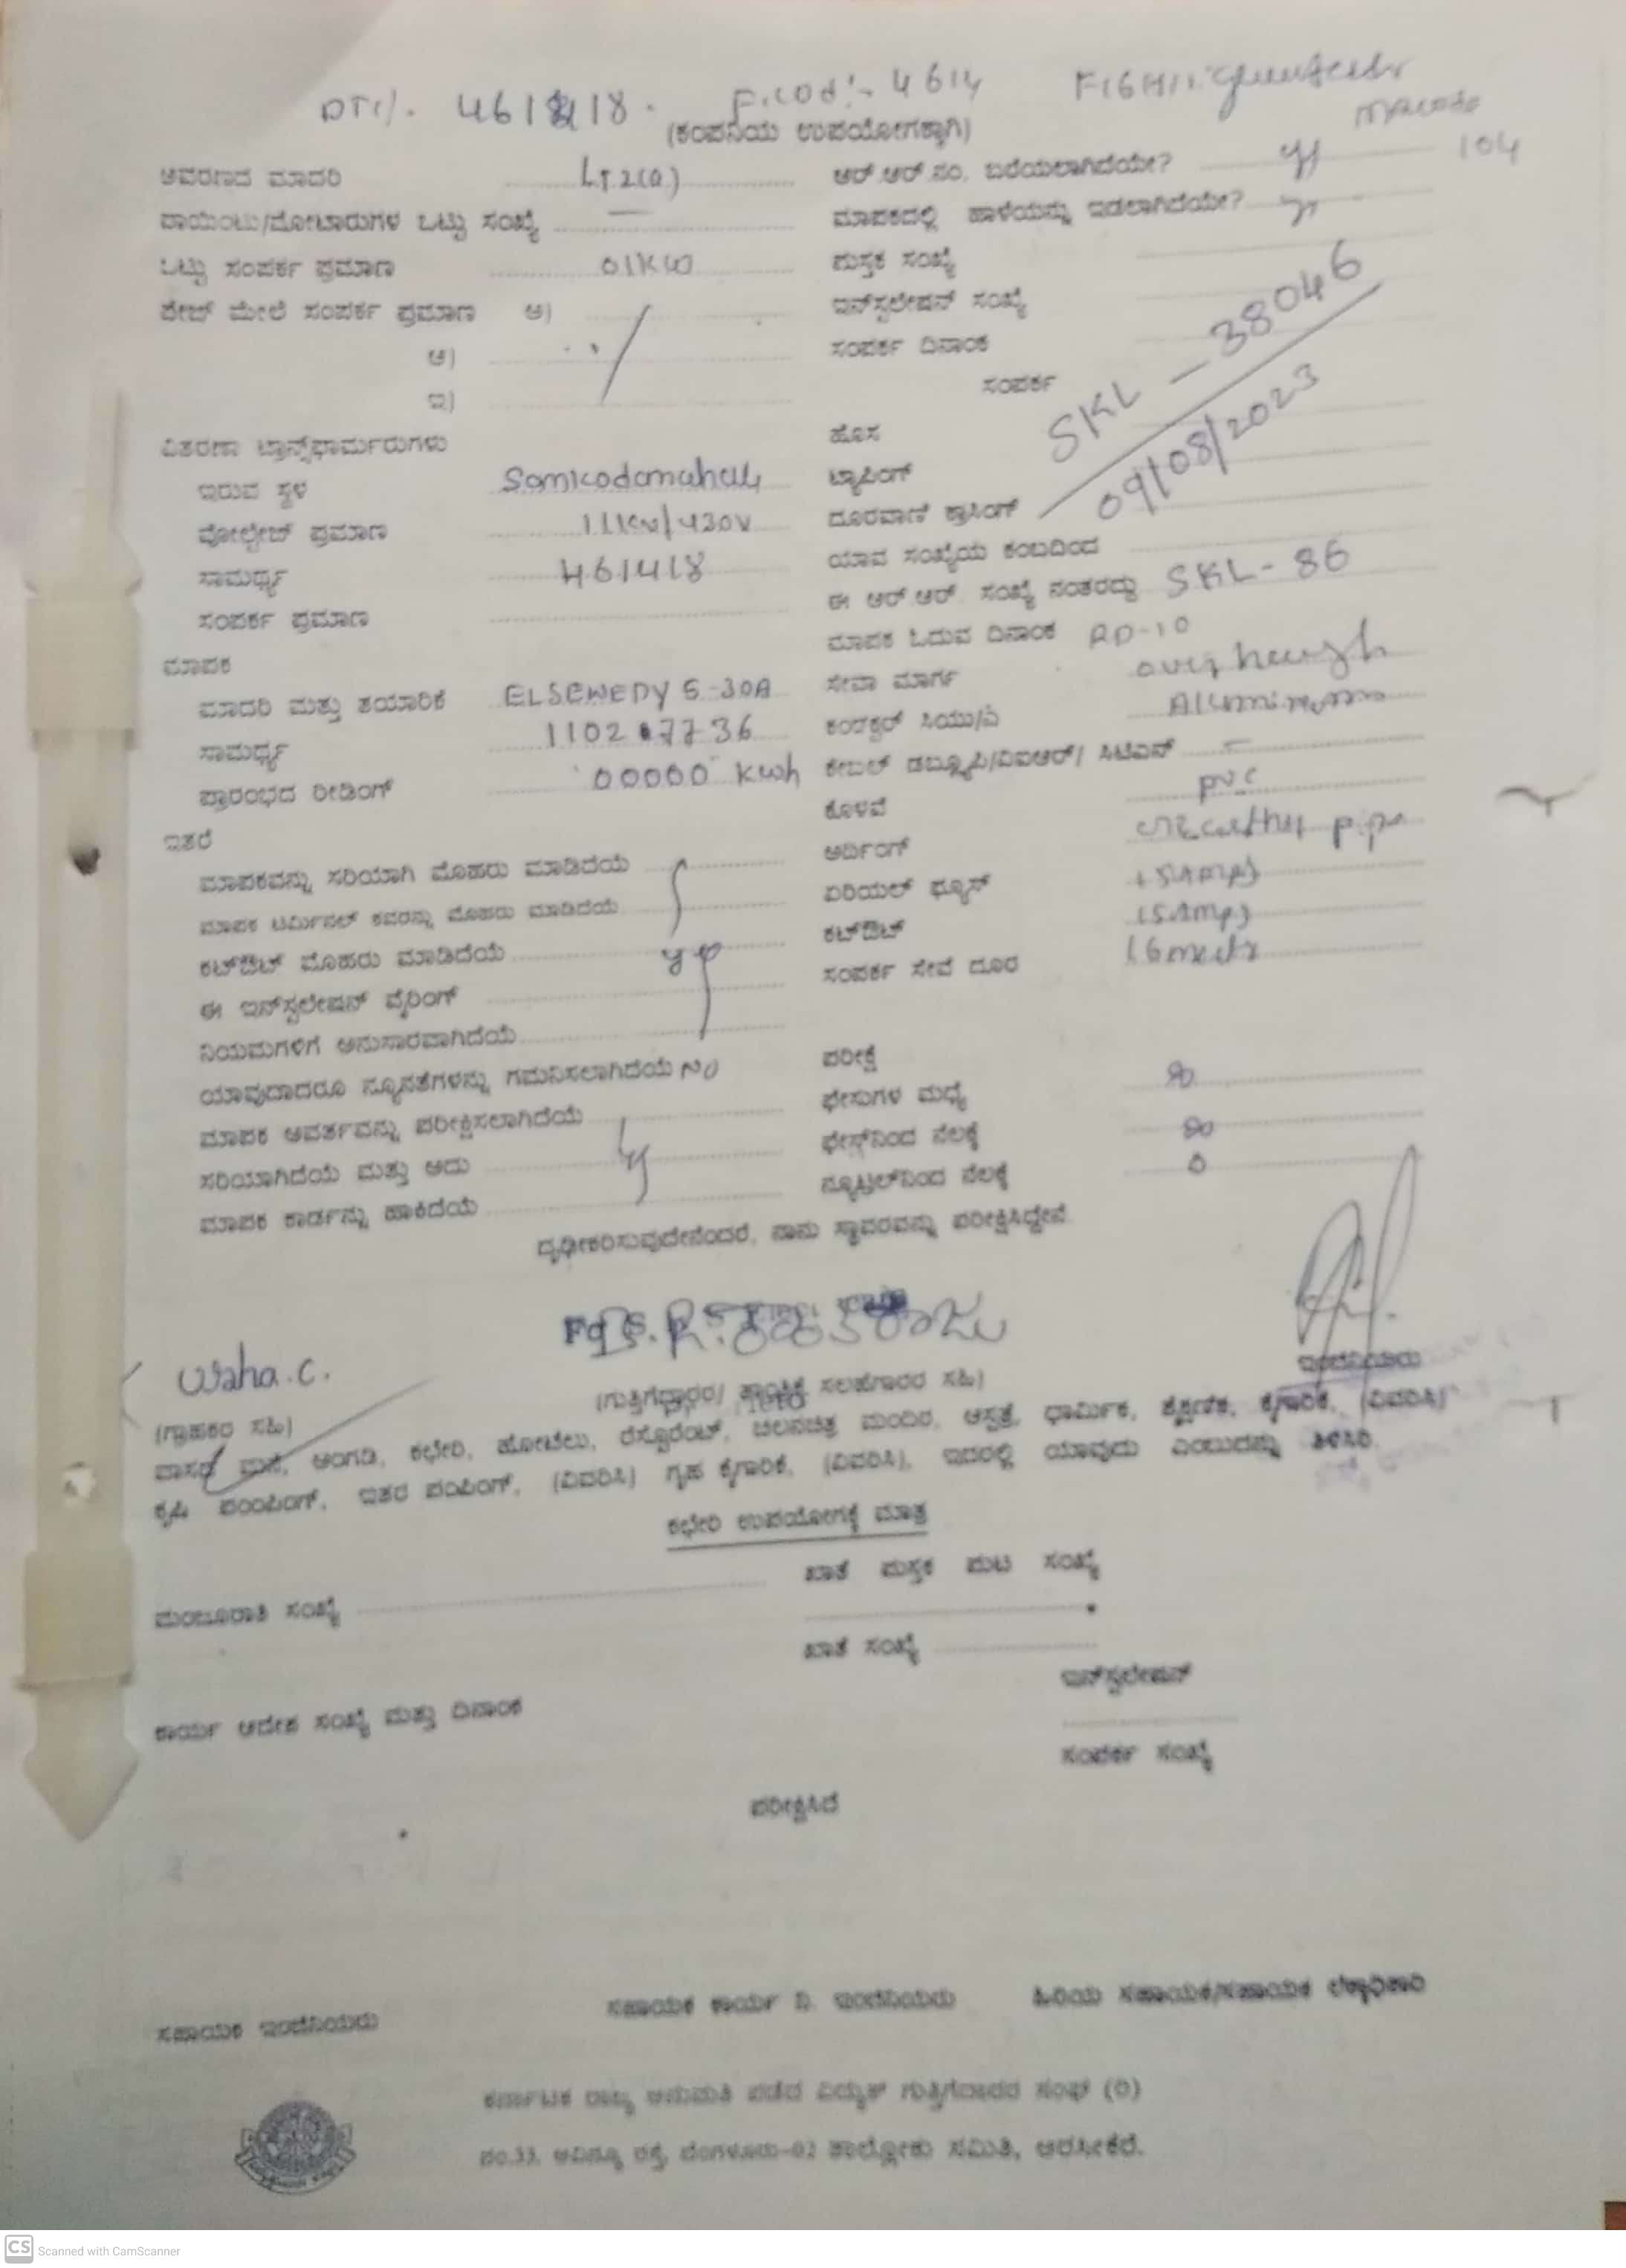 461418
F.cod:- 4614
104
(ಕಂಪನಿಯ ಉಪಯೋಗಕ್ಕಾಗಿ)
ಆವರಣದ ಮಾದರಿ LT 2(a)
ಪಾಯಿಂಟು/ಮೋಟಾರುಗಳ ಒಟ್ಟು ಸಂಖ್ಯೆ —
ಒಟ್ಟು ಸಂಪರ್ಕ ಪ್ರಮಾಣ 01KW
ಪೇಜ್ ಮೇಲೆ ಸಂಪರ್ಕ ಪ್ರಮಾಣ ಅ)
ಆ)
ಇ)
ವಿತರಣಾ ಟ್ರಾನ್ಸ್‌ಫಾರ್ಮರುಗಳು
ಇರುವ ಸ್ಥಳ
ವೋಲ್ಟೇಜ್ ಪ್ರಮಾಣ 11KV/430V
ಸಾಮರ್ಥ್ಯ 461418
ಸಂಪರ್ಕ ಪ್ರಮಾಣ
ಮಾಪಕ
ಮಾದರಿ ಮತ್ತು ತಯಾರಿಕೆ ELSEWEDY 5-30A
ಸಾಮರ್ಥ್ಯ
ಪ್ರಾರಂಭದ ರೀಡಿಂಗ್ 00000 kwh
ಇತರೆ
ಮಾಪಕವನ್ನು ಸರಿಯಾಗಿ ಮೊಹರು ಮಾಡಿದೆಯೆ
ಮಾಪಕ ಟರ್ಮಿನಲ್ ಕವರನ್ನು ಮೊಹರು ಮಾಡಿದೆಯೆ
ಕಟ್‌ಔಟ್ ಮೊಹರು ಮಾಡಿದೆಯೆ
ಈ ಇನ್‌ಸ್ಪಲೇಷನ್ ವೈರಿಂಗ್
ನಿಯಮಗಳಿಗೆ ಅನುಸಾರವಾಗಿದೆಯೆ
ಯಾವುದಾದರೂ ನ್ಯೂನತೆಗಳನ್ನು ಗಮನಿಸಲಾಗಿದೆಯೆ NO
ಮಾಪಕ ಆವರ್ತವನ್ನು ಪರೀಕ್ಷಿಸಲಾಗಿದೆಯೆ
ಸರಿಯಾಗಿದೆಯೆ ಮತ್ತು ಅದು
ಮಾಪಕ ಕಾರ್ಡನ್ನು ಹಾಕಿದೆಯೆ
ಆರ್.ಆರ್.ನಂ. ಬರೆಯಲಾಗಿದೆಯೇ?
ಮಾಪಕದಲ್ಲಿ ಹಾಳೆಯನ್ನು ಇಡಲಾಗಿದೆಯೇ?
ಪುಸ್ತಕ ಸಂಖ್ಯೆ
ಇನ್‌ಸ್ಪಲೇಷನ್ ಸಂಖ್ಯೆ
ಸಂಪರ್ಕ ದಿನಾಂಕ
SKL — 38046
09/08/2023
ಸಂಪರ್ಕ
ಹೊಸ
ಟ್ಯಾಪಿಂಗ್
ದೂರವಾಣಿ ಕ್ರಾಸಿಂಗ್
ಯಾವ ಸಂಖ್ಯೆಯ ಕಂಬದಿಂದ
ಈ ಆರ್.ಆರ್. ಸಂಖ್ಯೆ ನಂತರದ್ದು SKL-86
ಮಾಪಕ ಓದುವ ದಿನಾಂಕ RD-10
ಸೇವಾ ಮಾರ್ಗ
ಕಂಡಕ್ಟರ್ ಸಿಯು/ಎ
ಕೇಬಲ್ ಡಬ್ಲ್ಯೂಪಿ/ವಿಐಆರ್/ ಸಿಟಿಎಸ್ —
ಕೊಳವೆ PVC
ಅರ್ದಿಂಗ್
ಏರಿಯಲ್ ಫ್ಯೂಸ್
ಕಟ್‌ಔಟ್
ಸಂಪರ್ಕ ಸೇವೆ ದೂರ
ಪರೀಕ್ಷೆ
ಫೇಸುಗಳ ಮಧ್ಯೆ
ಫೇಸ್‌ನಿಂದ ನೆಲಕ್ಕೆ
ನ್ಯೂಟ್ರಲ್‌ನಿಂದ ನೆಲಕ್ಕೆ 0
ದೃಢೀಕರಿಸುವುದೇನೆಂದರೆ, ನಾನು ಸ್ಥಾವರವನ್ನು ಪರೀಕ್ಷಿಸಿದ್ದೇನೆ.
(ಗ್ರಾಹಕರ ಸಹಿ)
(ಗುತ್ತಿಗೆದ್ದಾರರ/ ತಾಂತ್ರಿಕ ಸಲಹೆಗಾರರ ಸಹಿ)
ಇಂಜಿನಿಯರು
ವಾಸದ ಮನೆ, ಅಂಗಡಿ, ಕಛೇರಿ, ಹೋಟೆಲು, ರೆಸ್ಟೊರೆಂಟ್, ಚಲನಚಿತ್ರ ಮಂದಿರ, ಆಸ್ಪತ್ರೆ, ಧಾರ್ಮಿಕ, ಶೈಕ್ಷಣಿಕ, ಕೈಗಾರಿಕೆ, (ವಿವರಿಸಿ)
ಕೃಷಿ ಪಂಂಪಿಂಗ್, ಇತರ ಪಂಪಿಂಗ್, (ವಿವರಿಸಿ) ಗೃಹ ಕೈಗಾರಿಕೆ, (ವಿವರಿಸಿ), ಇದರಲ್ಲಿ ಯಾವುದು ಎಂಬುದನ್ನು ತಿಳಿಸಿರಿ.
ಕಛೇರಿ ಉಪಯೋಗಕ್ಕೆ ಮಾತ್ರ
ಮಂಜೂರಾತಿ ಸಂಖ್ಯೆ
ಖಾತೆ ಪುಸ್ತಕ ಪುಟ ಸಂಖ್ಯೆ
ಖಾತೆ ಸಂಖ್ಯೆ
ಇನ್‌ಸ್ಪಲೇಷನ್
ಕಾರ್ಯ ಆದೇಶ ಸಂಖ್ಯೆ ಮತ್ತು ದಿನಾಂಕ
ಸಂಪರ್ಕ ಸಂಖ್ಯೆ
ಪರೀಕ್ಷಿಸಿದೆ
ಸಹಾಯಕ ಇಂಜಿನಿಯರು
ಸಹಾಯಕ ಕಾರ್ಯ ನಿ. ಇಂಜಿನಿಯರು
ಹಿರಿಯ ಸಹಾಯಕ/ಸಹಾಯಕ ಲೆಕ್ಕಾಧಿಕಾರಿ
ಕರ್ನಾಟಕ ರಾಜ್ಯ ಅನುಮತಿ ಪಡೆದ ವಿದ್ಯುತ್ ಗುತ್ತಿಗೆದಾರರ ಸಂಘ (ರಿ)
ನಂ.33, ಅವಿನ್ಯೂ ರಸ್ತೆ, ಬೆಂಗಳೂರು-02 ತಾಲ್ಲೋಕು ಸಮಿತಿ, ಅರಸೀಕೆರೆ.
CS Scanned with CamScanner